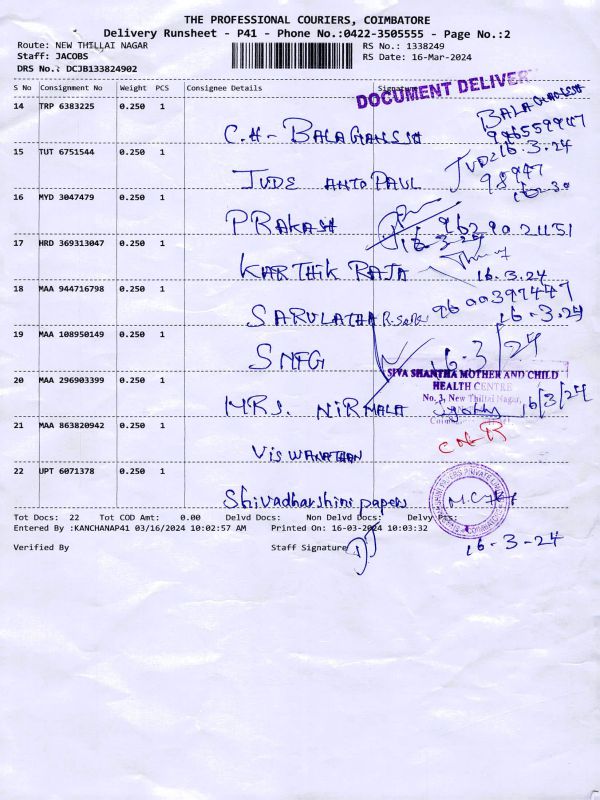 THE PROFESSIONAL COURIERS, COIMBATORE
Delivery Runsheet - P41 - Phone No.:0422-3505555 - Page No.:2
Route: NEW THILLAI NAGAR RS No.: 1338249
Staff: JACOBS RS Date: 16-Mar-2024
DRS No.: DCJB133824902
S No Consignment No Weight PCS Consignee Details Signature
DOCUMENT DELIVER
14 TRP 6383225 0.250 1
C.H- BALAGANESH BALAGANESH
15 TUT 6751544 0.250 1 16.3.24
JUDE ANTO PAUL JUDE 98947
16 MYD 3047479 0.250 1
PRAKASH 9629021151
16-3-24
17 HRD 369313047 0.250 1
KARTHIK RAJA 16.3.24
18 MAA 944716798 0.250 1
SARULATHA 9600397447
16.3.24
19 MAA 108950149 0.250 1
SMFG 16-3/24
SIVA SHANTHA MOTHER AND CHILD
HEALTH CENTRE
20 MAA 296903399 0.250 1 No. 3, New Thillai Nagar,
MRS. NIRMALA 16/3/24
21 MAA 863820942 0.250 1
VISWANATHAN
22 UPT 6071378 0.250 1
Shivadharshini papers
Tot Docs: 22 Tot COD Amt: 0.00 Delvd Docs: Non Delvd Docs: Delvy
Entered By :KANCHANAP41 03/16/2024 10:02:57 AM Printed On: 16-03-2024 10:03:32
Verified By Staff Signature 16-3-24